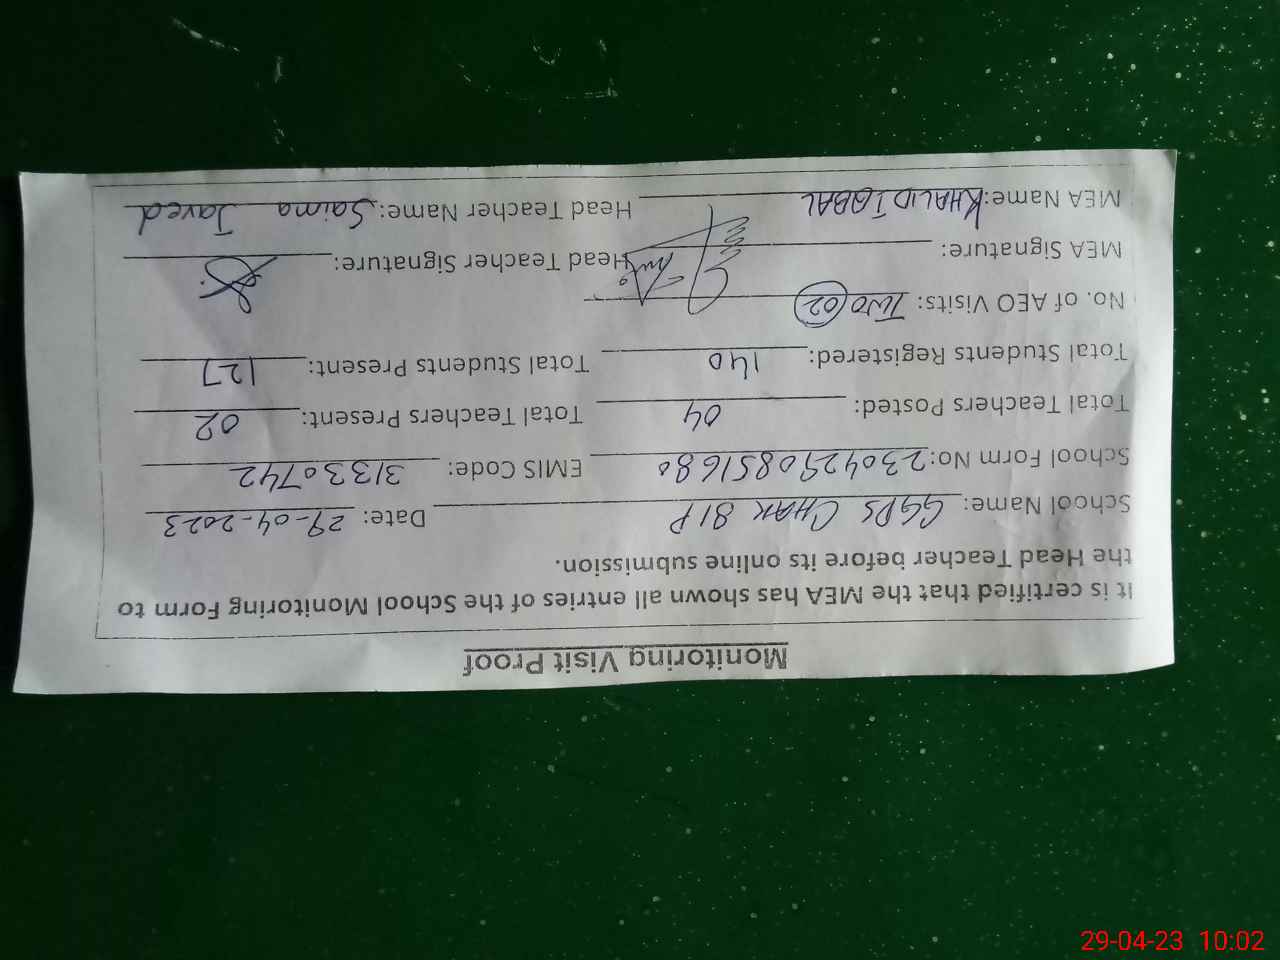 Monitoring Visit Proof
It is certified that the MEA has shown all entries of the School Monitoring Form to
the Head Teacher before its online submission.
School Name: GGPS CHAK 81P Date: 29-04-2023
School Form No: 230429085168 0 EMIS Code: 31330742
Total Teachers Posted: 04 Total Teachers Present: 02
Total Students Registered: 140 Total Students Present: 127
No. of AEO Visits: Two 02
MEA Signature: Head Teacher Signature:
MEA Name: KHALID IQBAL Head Teacher Name: Saima Javed
29-04-23 10:02